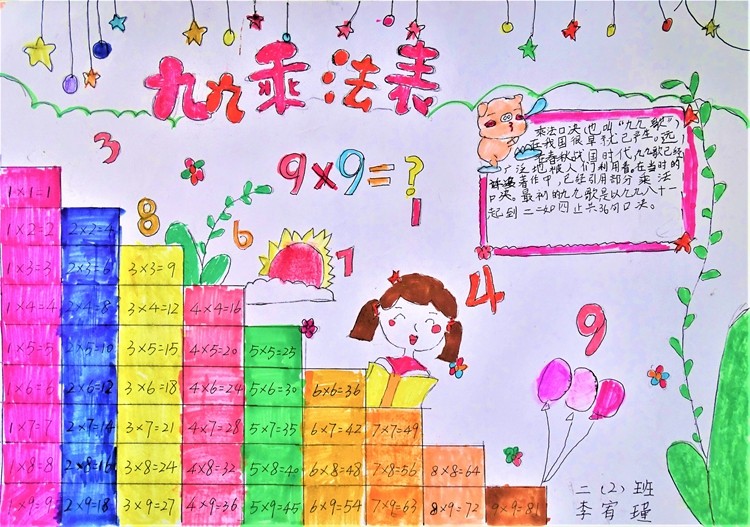 九九乘法表
3
9×9=?
1
8
6
7
4
9
乘法口决也叫“九九歌”,
在我国很早就已产生。远
在春秋战国时代,九九歌已经
广泛地被人们利用着。在当时的
著作中,已经引用部分乘法
口决。最初的九九歌是以九九八十一
起到二二如四止共36句口决。
1×1=1
1×2=2 2×2=4
1×3=3 2×3=6 3×3=9
1×4=4 2×4=8 3×4=12 4×4=16
1×5=5 2×5=10 3×5=15 4×5=20 5×5=25
1×6=6 2×6=12 3×6=18 4×6=24 5×6=30 6×6=36
1×7=7 2×7=14 3×7=21 4×7=28 5×7=35 6×7=42 7×7=49
1×8=8 2×8=16 3×8=24 4×8=32 5×8=40 6×8=48 7×8=56 8×8=64
1×9=9 2×9=18 3×9=27 4×9=36 5×9=45 6×9=54 7×9=63 8×9=72 9×9=81
二(2)班
李宥瑾